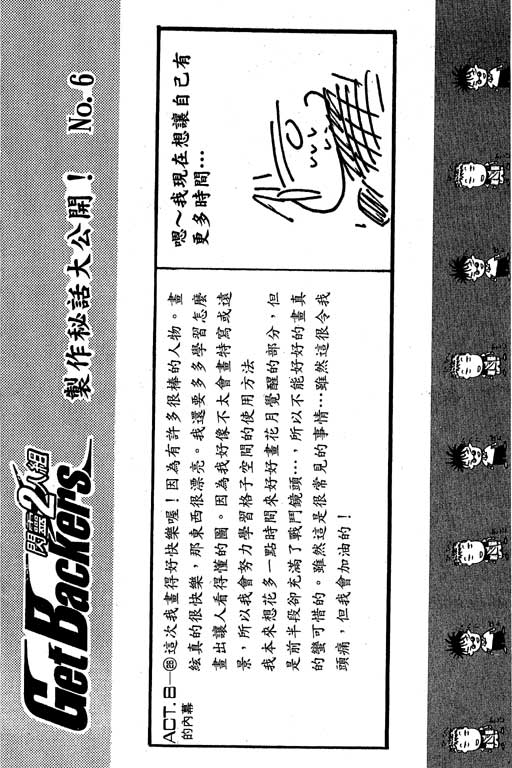 閃靈2人組
GetBackers
製作秘話大公開！ No.6
ACT. 8—
的內幕
這次我畫得好快樂喔！因為有許多很棒的人物。畫
絃真的很快樂，那東西很漂亮。我還要多多學習怎麼
畫出讓人看得懂的圖。因為我好像不太會畫特寫或遠
景，所以我會努力學習格子空間的使用方法
我本來想花多一點時間來好好畫花月覺醒的部分，但
是前半段卻充滿了戰鬥鏡頭…，所以不能好好的畫真
的蠻可惜的。雖然這是很常見的事情…雖然這很令我
頭痛，但我會加油的！
嗯～我現在想讓自己有
更多時間…